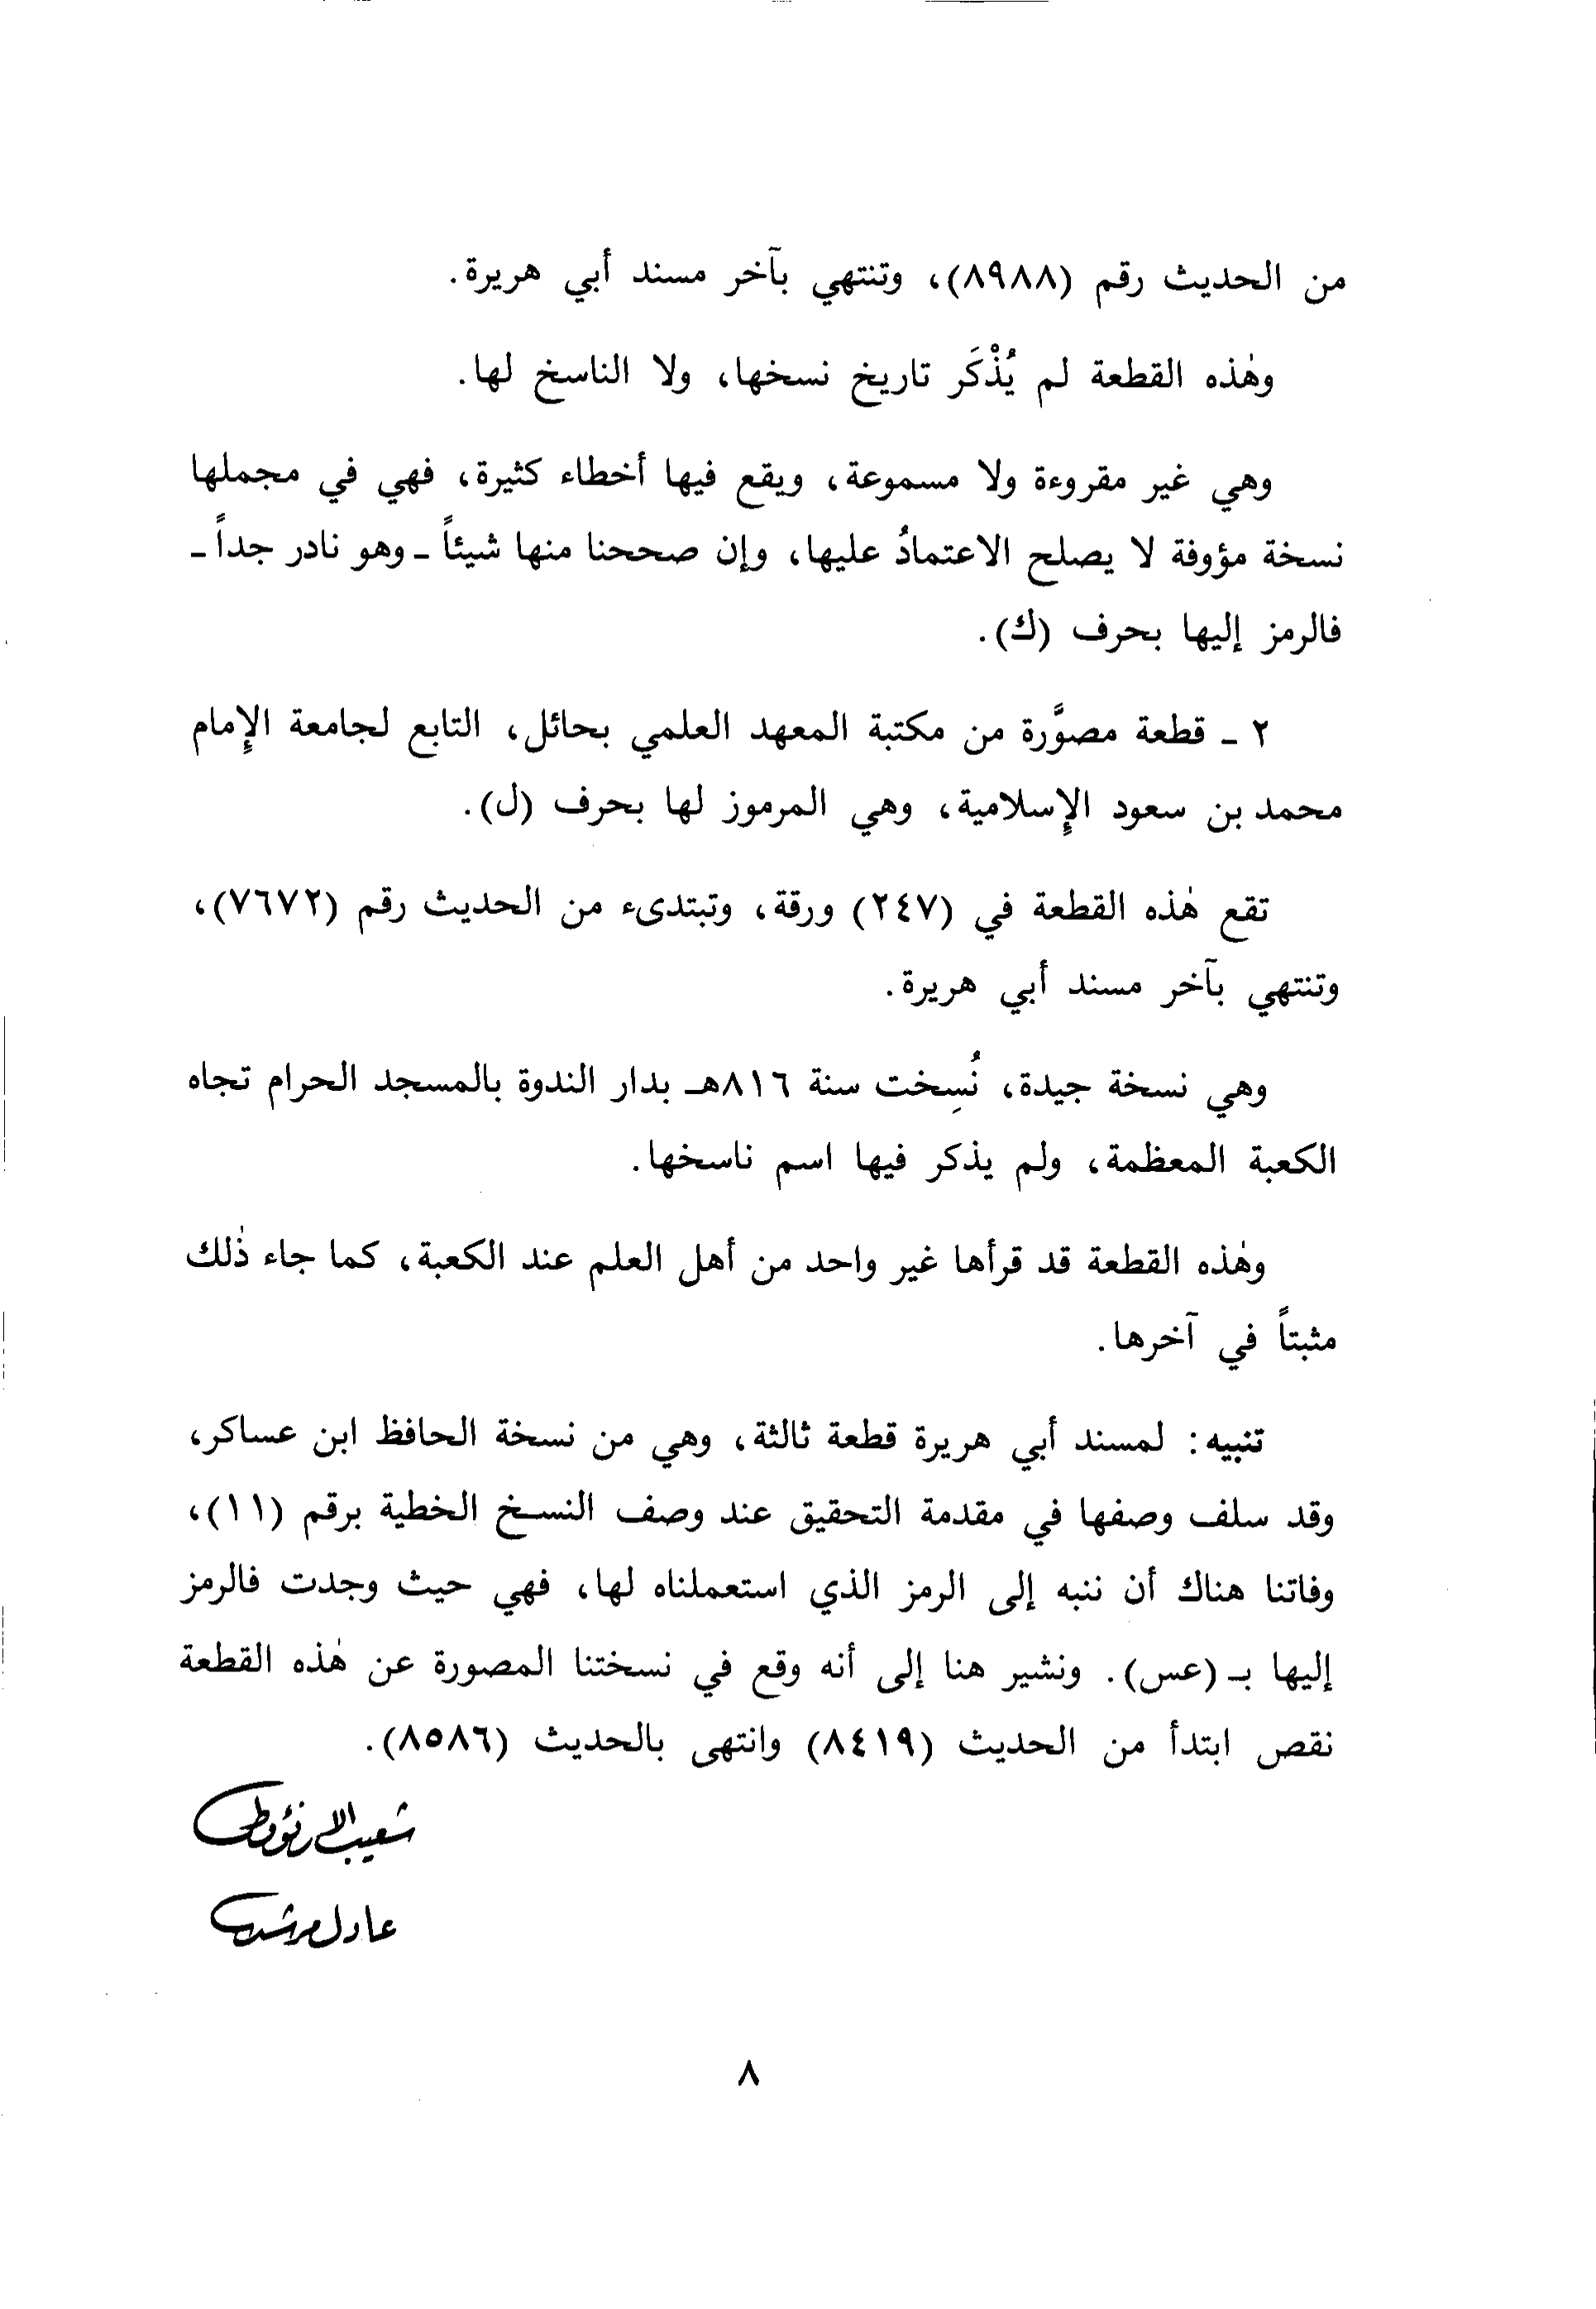 من الحديث رقم (٨٩٨٨)، وتنتهي بآخر مسند أبي هريرة.
وهٰذه القطعة لم يُذْكَر تاريخ نسخها، ولا الناسخ لها.
وهي غير مقروءة ولا مسموعة، ويقع فيها أخطاء كثيرة، فهي في مجملها
نسخة مؤوفة لا يصلح الاعتمادُ عليها، وإن صححنا منها شيئاً - وهو نادر جداً -
فالرمز إليها بحرف (ك).
٢ - قطعة مصوَّرة من مكتبة المعهد العلمي بحائل، التابع لجامعة الإمام
محمد بن سعود الإسلامية، وهي المرموز لها بحرف (ل).
تقع هٰذه القطعة في (٢٤٧) ورقة، وتبتدىء من الحديث رقم (٧٦٧٢)،
وتنتهي بآخر مسند أبي هريرة.
وهي نسخة جيدة، نُسِخت سنة ٨١٦هـ بدار الندوة بالمسجد الحرام تجاه
الكعبة المعظمة، ولم يذكر فيها اسم ناسخها.
وهٰذه القطعة قد قرأها غير واحد من أهل العلم عند الكعبة، كما جاء ذٰلك
مثبتاً في آخرها.
تنبيه: لمسند أبي هريرة قطعة ثالثة، وهي من نسخة الحافظ ابن عساكر،
وقد سلف وصفها في مقدمة التحقيق عند وصف النسخ الخطية برقم (١١)،
وفاتنا هناك أن ننبه إلى الرمز الذي استعملناه لها، فهي حيث وجدت فالرمز
إليها بـ (عس). ونشير هنا إلى أنه وقع في نسختنا المصورة عن هٰذه القطعة
نقص ابتدأ من الحديث (٨٤١٩) وانتهى بالحديث (٨٥٨٦).
شعيب الارنؤوط
عادل مرشد
٨